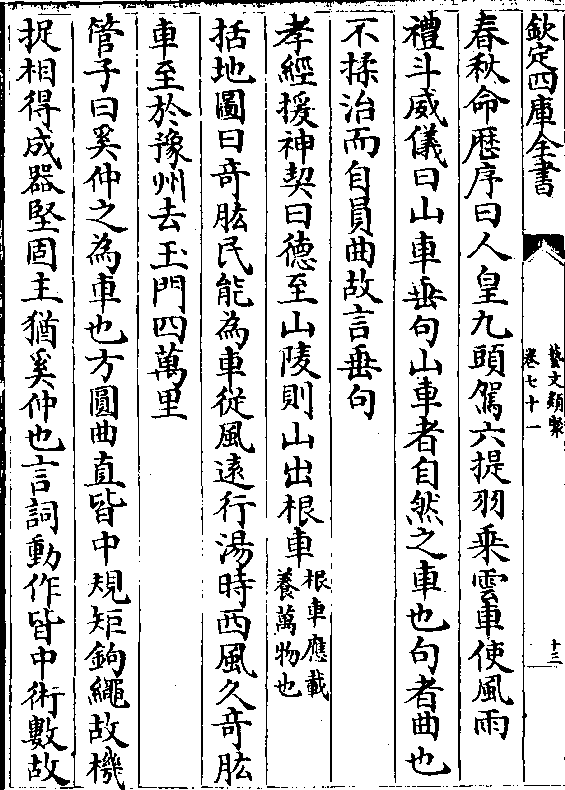 欽定四庫全書
藝文類聚
卷七十一
十三
春秋命歷序曰人皇九頭駕六提羽乘雲車使風雨
禮斗威儀曰山車垂句山車者自然之車也句者曲也
不揉治而自員曲故言垂句
孝經援神契曰德至山陵則山出根車根車應載養萬物也
括地圖曰奇肱民能為車從風遠行湯時西風久奇肱
車至於豫州去玉門四萬里
管子曰奚仲之為車也方圓曲直皆中規矩鉤繩故機
捉相得成器堅固主猶奚仲也言詞動作皆中術數故